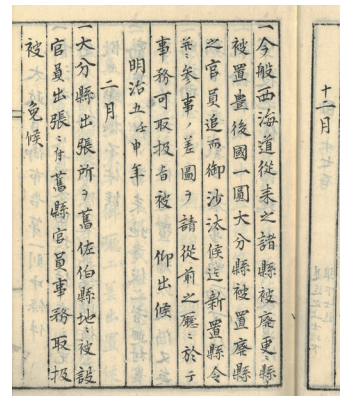 十二月
一今般西海道從来之諸縣被廃更ニ縣
被置豊後國一圓大分縣被置廃縣
之官員追而御沙汰候迄新置縣令
并ニ参事ノ差圖ヲ請從前之廳ニ於テ
事務可取扱旨被 仰出候
明治五壬申年
二月
一大分縣出張所ヲ舊佐伯縣地ニ被設
官員出張ニ付舊縣官員ノ事務取扱
被 免候